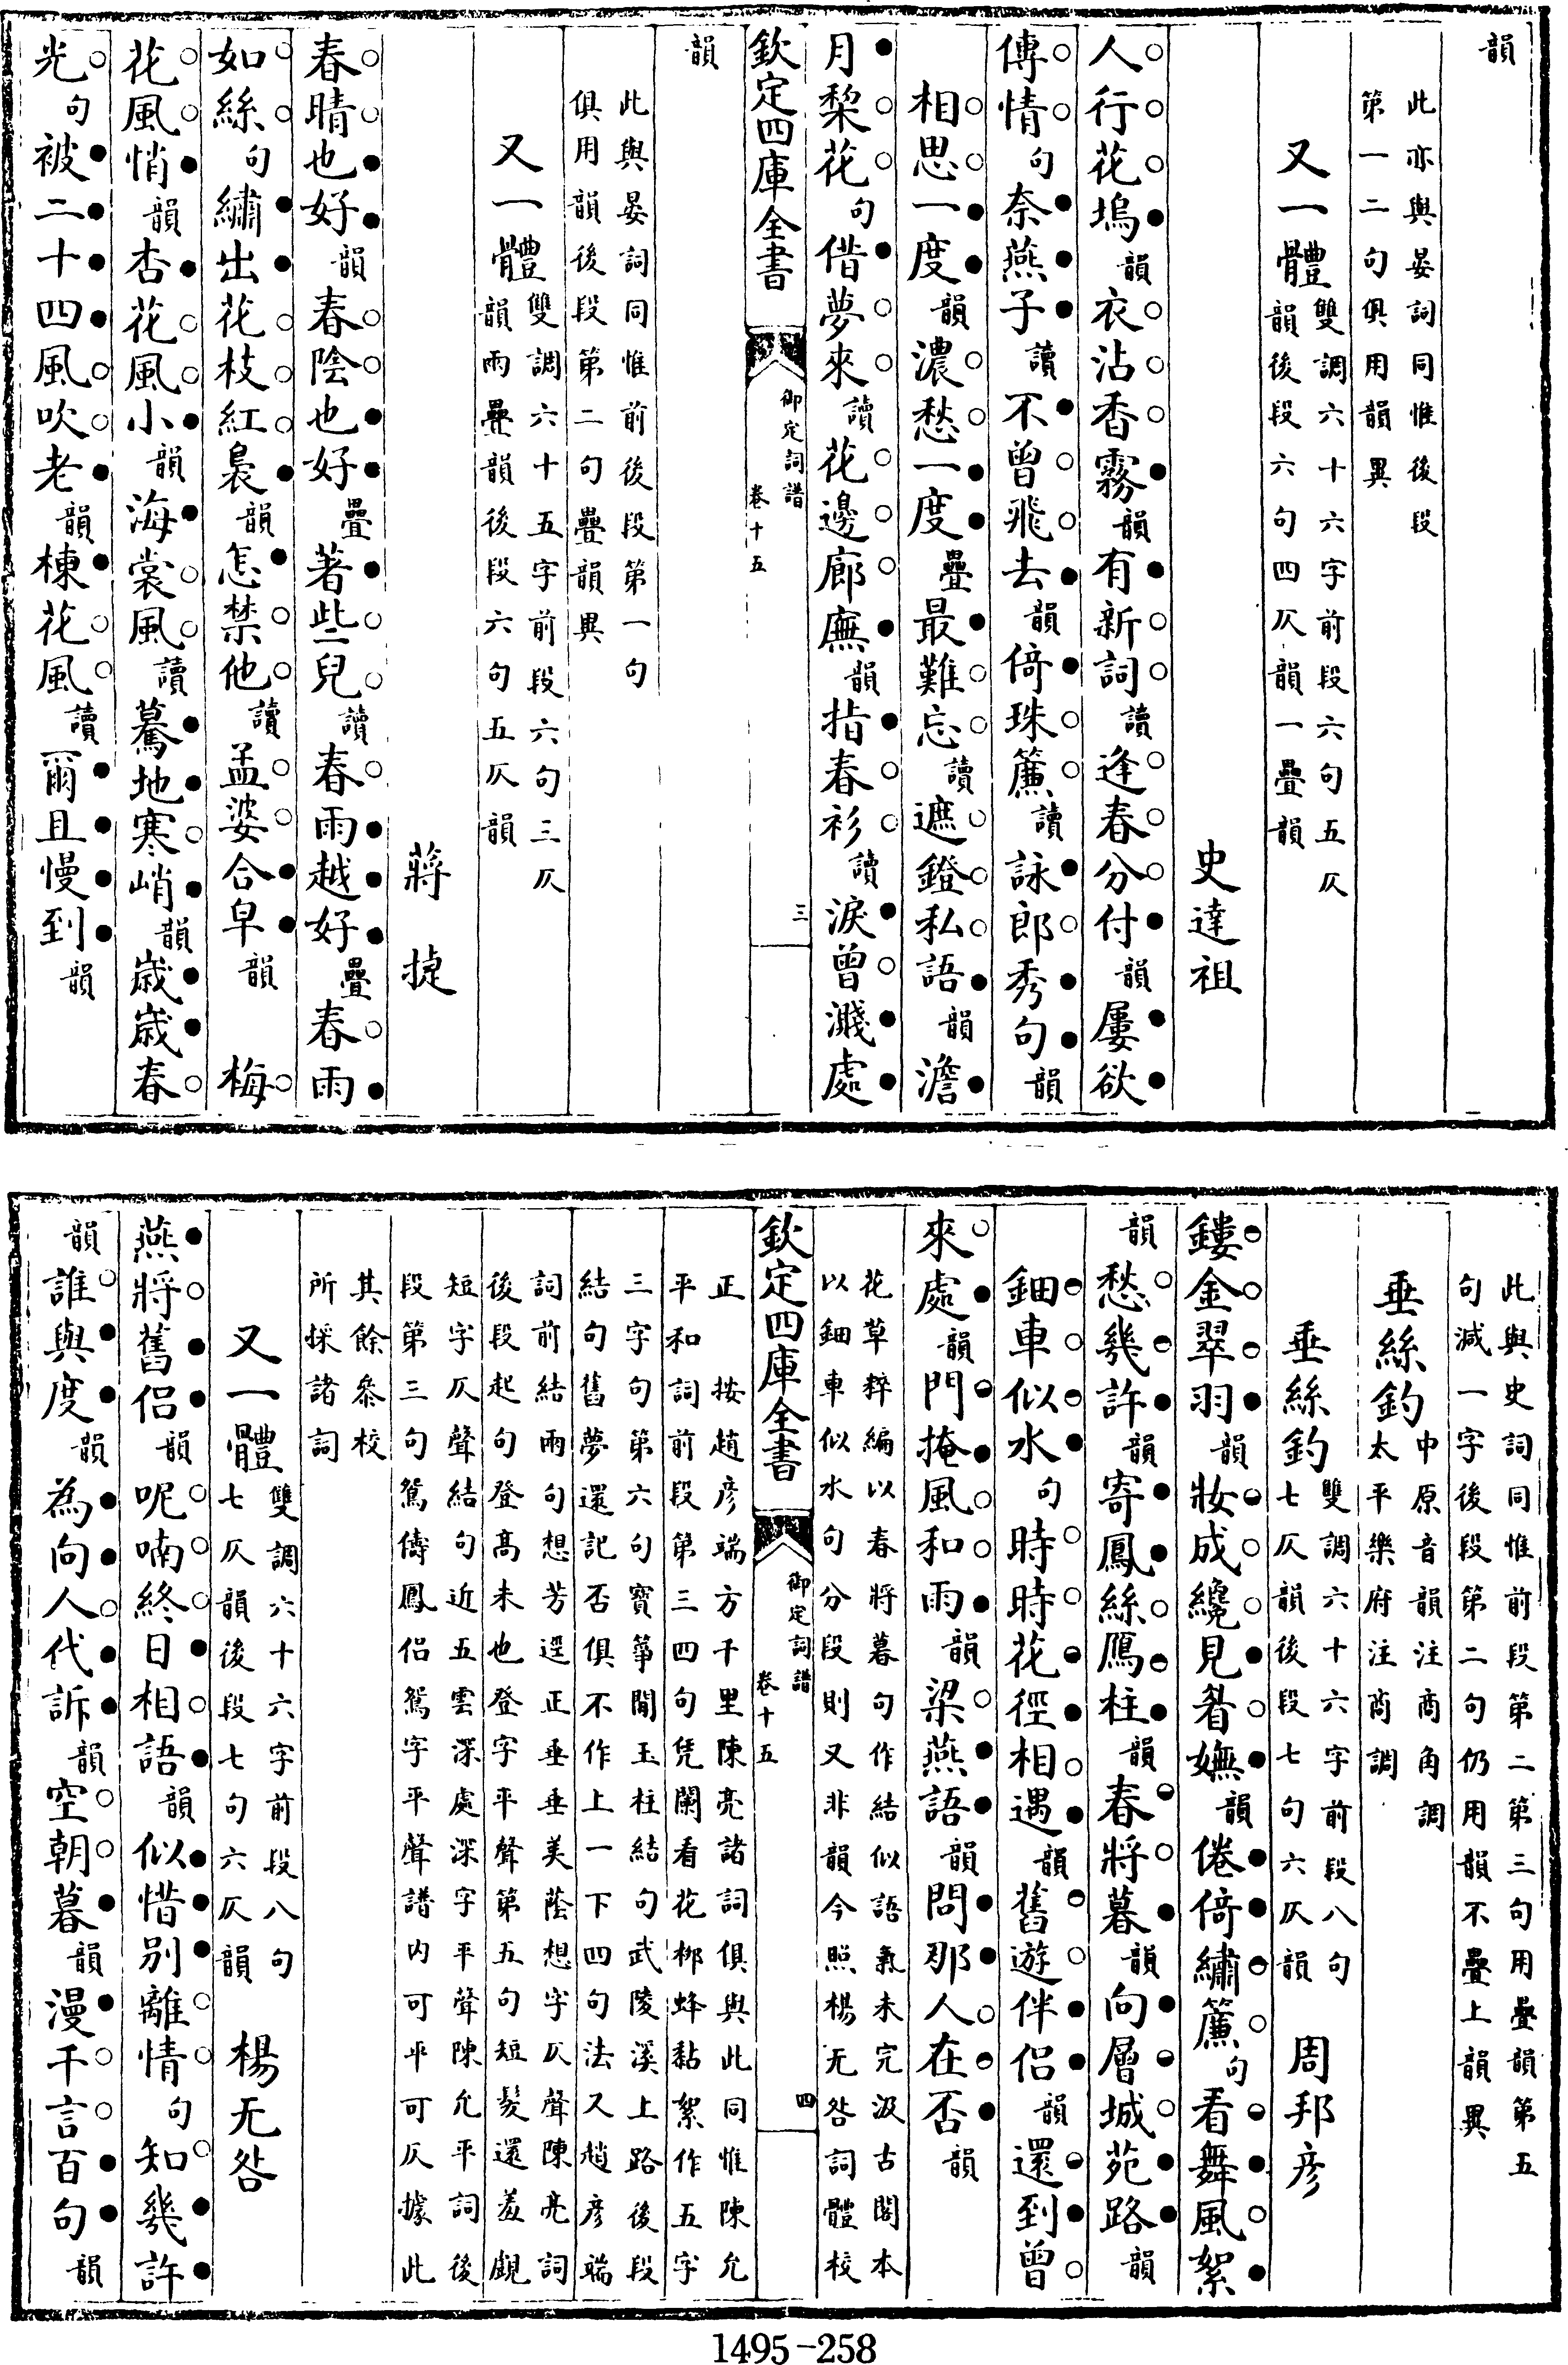 韻
此亦與晏詞同惟後段
第一二句俱用韻異
又一體
雙調六十六字前段六句五仄
韻後段六句四仄韻一疊韻
史達祖
人行花塢韻衣沾香霧韻有新詞讀逢春分付韻屢欲
傳情句奈燕子讀不曾飛去韻倚珠簾讀詠郎秀句韻
相思一度韻濃愁一度疊最難忘讀遮鐙私語韻澹
月棃花句借夢來讀花邊廊廡韻指春衫讀淚曾濺處
欽定四庫全書
御定詞譜
卷十五
三
韻
此與晏詞同惟前後段第一句
俱用韻後段第二句疊韻異
又一體
雙調六十五字前段六句三仄
韻兩疊韻後段六句五仄韻
蔣捷
春晴也好韻春陰也好疊著些兒讀春雨越好疊春雨
如絲句繡出花枝紅裊韻怎禁他讀孟婆合早韻 梅
花風悄韻杏花風小韻海棠風讀驀地寒峭韻歲歲春
光句被二十四風吹老韻楝花風讀爾且慢到韻
此與史詞同惟前段第二第三句用疊韻第五
句減一字後段第二句仍用韻不疊上韻異
垂絲釣
中原音韻注商角調
太平樂府注商調
垂絲釣
雙調六十六字前段八句
七仄韻後段七句六仄韻
周邦彥
鏤金翠羽韻妝成纔見眷嫵韻倦倚繡簾句看舞風絮
韻愁幾許韻寄鳳絲鴈柱韻春將暮韻向層城苑路韻
鈿車似水句時時花徑相遇韻舊遊伴侶韻還到曾
來處韻門掩風和雨韻梁燕語韻問那人在否韻
花草粹編以春將暮句作結似語氣未完汲古閣本
以鈿車似水句分段則又非韻今照楊无咎詞體校
欽定四庫全書
御定詞譜
卷十五
四
正 按趙彥端方千里陳亮諸詞俱與此同惟陳允
平和詞前段第三四句凭闌看花柳蜂黏絮作五字
三字句第六句寶箏閒玉柱結句武陵溪上路後段
結句舊夢還記否俱不作上一下四句法又趙彥端
詞前結兩句想芳逕正垂垂美蔭想字仄聲陳亮詞
後段起句登高未也登字平聲第五句短髮還羞覷
短字仄聲結句近五雲深處深字平聲陳允平詞後
段第三句鴛儔鳳侶鴛字平聲譜内可平可仄據此
其餘叅校
所採諸詞
又一體
雙調六十六字前段八句
七仄韻後段七句六仄韻
楊无咎
燕將舊侶韻呢喃終日相語韻似惜別離情句知幾許
韻誰與度韻為向人代訴韻空朝暮韻漫千言百句韻
1495-258